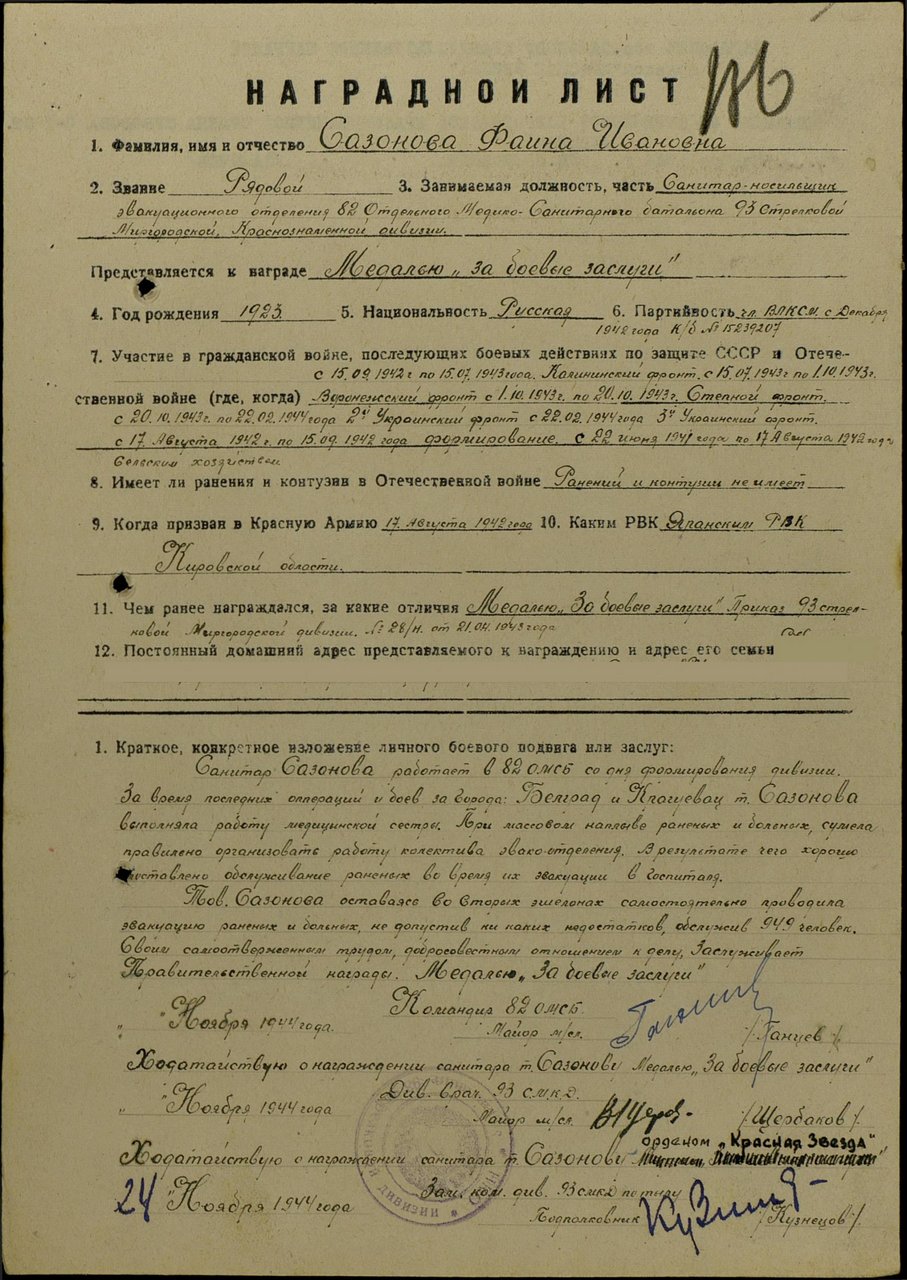 НАГРАДНОЙ ЛИСТ
1. Фамилия, имя и отчество Сазонова Фаина Ивановна
2. Звание Рядовой 3. Занимаемая должность, часть Санитар-носильщик
эвакуационного отделения 82 Отдельного Медико-Санитарного батальона 93 Стрелковой
Миргородской, Краснознаменной дивизии.
Представляется к награде Медалью „За боевые заслуги"
4. Год рождения 1923 5. Национальность Русская 6. Партийность чл. ВЛКСМ. с Декабря
1942 года К/б № 15239207
7. Участие в гражданской войне, последующих боевых действиях по защите СССР и Отече-
с 15.09.1942 г по 15.07.1943 года. Калининский фронт. с 15.07.1943 г по 1.10.1943 г.
ственной войне (где, когда) Воронежсский фронт с 1.10.1943 г. по 20.10.1943 г. Степной фронт.
с 20.10.1943 г. по 22.02.1944 года 2й Украинский фронт с 22.02.1944 года 3й Укоаинский фронт.
с 17 Августа 1942 г. по 15.09.1942 года формирование. с 22 июня 1941 года по 17 Августа 1942 года
Сельским хозяйством
8. Имеет ли ранения и контузии в Отечественной войне Ранений и контузии не имеет
9. Когда призван в Красную Армию 17 Августа 1942 года 10. Каким РВК Яранским РВК
Кировской области.
11. Чем ранее награждался, за какие отличия Медалью „За боевые заслуги" Приказ 93 стрел-
ковой Миргородской дивизии. № 28/н. от 21.04.1943 года
12. Постоянный домашний адрес представляемого к награждению и адрес его семьи
1. Краткое, конкретное изложение личного боевого подвига или заслуг:
Санитар Сазонова работает в 82 омсб со дня формирования дивизии.
За время последних оппераций и боев за города: Белград и Крагуевац т. Сазонова
выполняла работу медицинской сестры. При массовом наплыве раненых и больных, сумела
правилено организовать работу колектива эвако-отделения. В результате чего хорошо
поставлено обслуживание раненых во время их эвакуации в госпиталя.
Тов. Сазонова оставаясь во вторых эшелонах самостоятельно проводила
эвакуацию раненых и больных, не допустив ни каких недостатков, обслужив 949 человек.
Своим самоотверженным трудом, добросовестным отношением к делу, Заслуживает
Правительственной награды. Медалью „За боевые заслуги"
Командир 82 омсб.
„ " Ноября 1944 года. Майор м/сл. /Ганцев/
Ходатайствую о награждении санитара т. Сазонову Медалью „За боевые заслуги"
Див. врач. 93 смкд.
„ " Ноября 1944 года Майор м/сл. /Щербаков/.
орденом „Красная Звезда"
Ходатайствую о награждении санитара т. Сазонову
Зам. ком. див. 93 смкд по тылу
24 " Ноября 1944 года Подполковник /Кузнецов/.